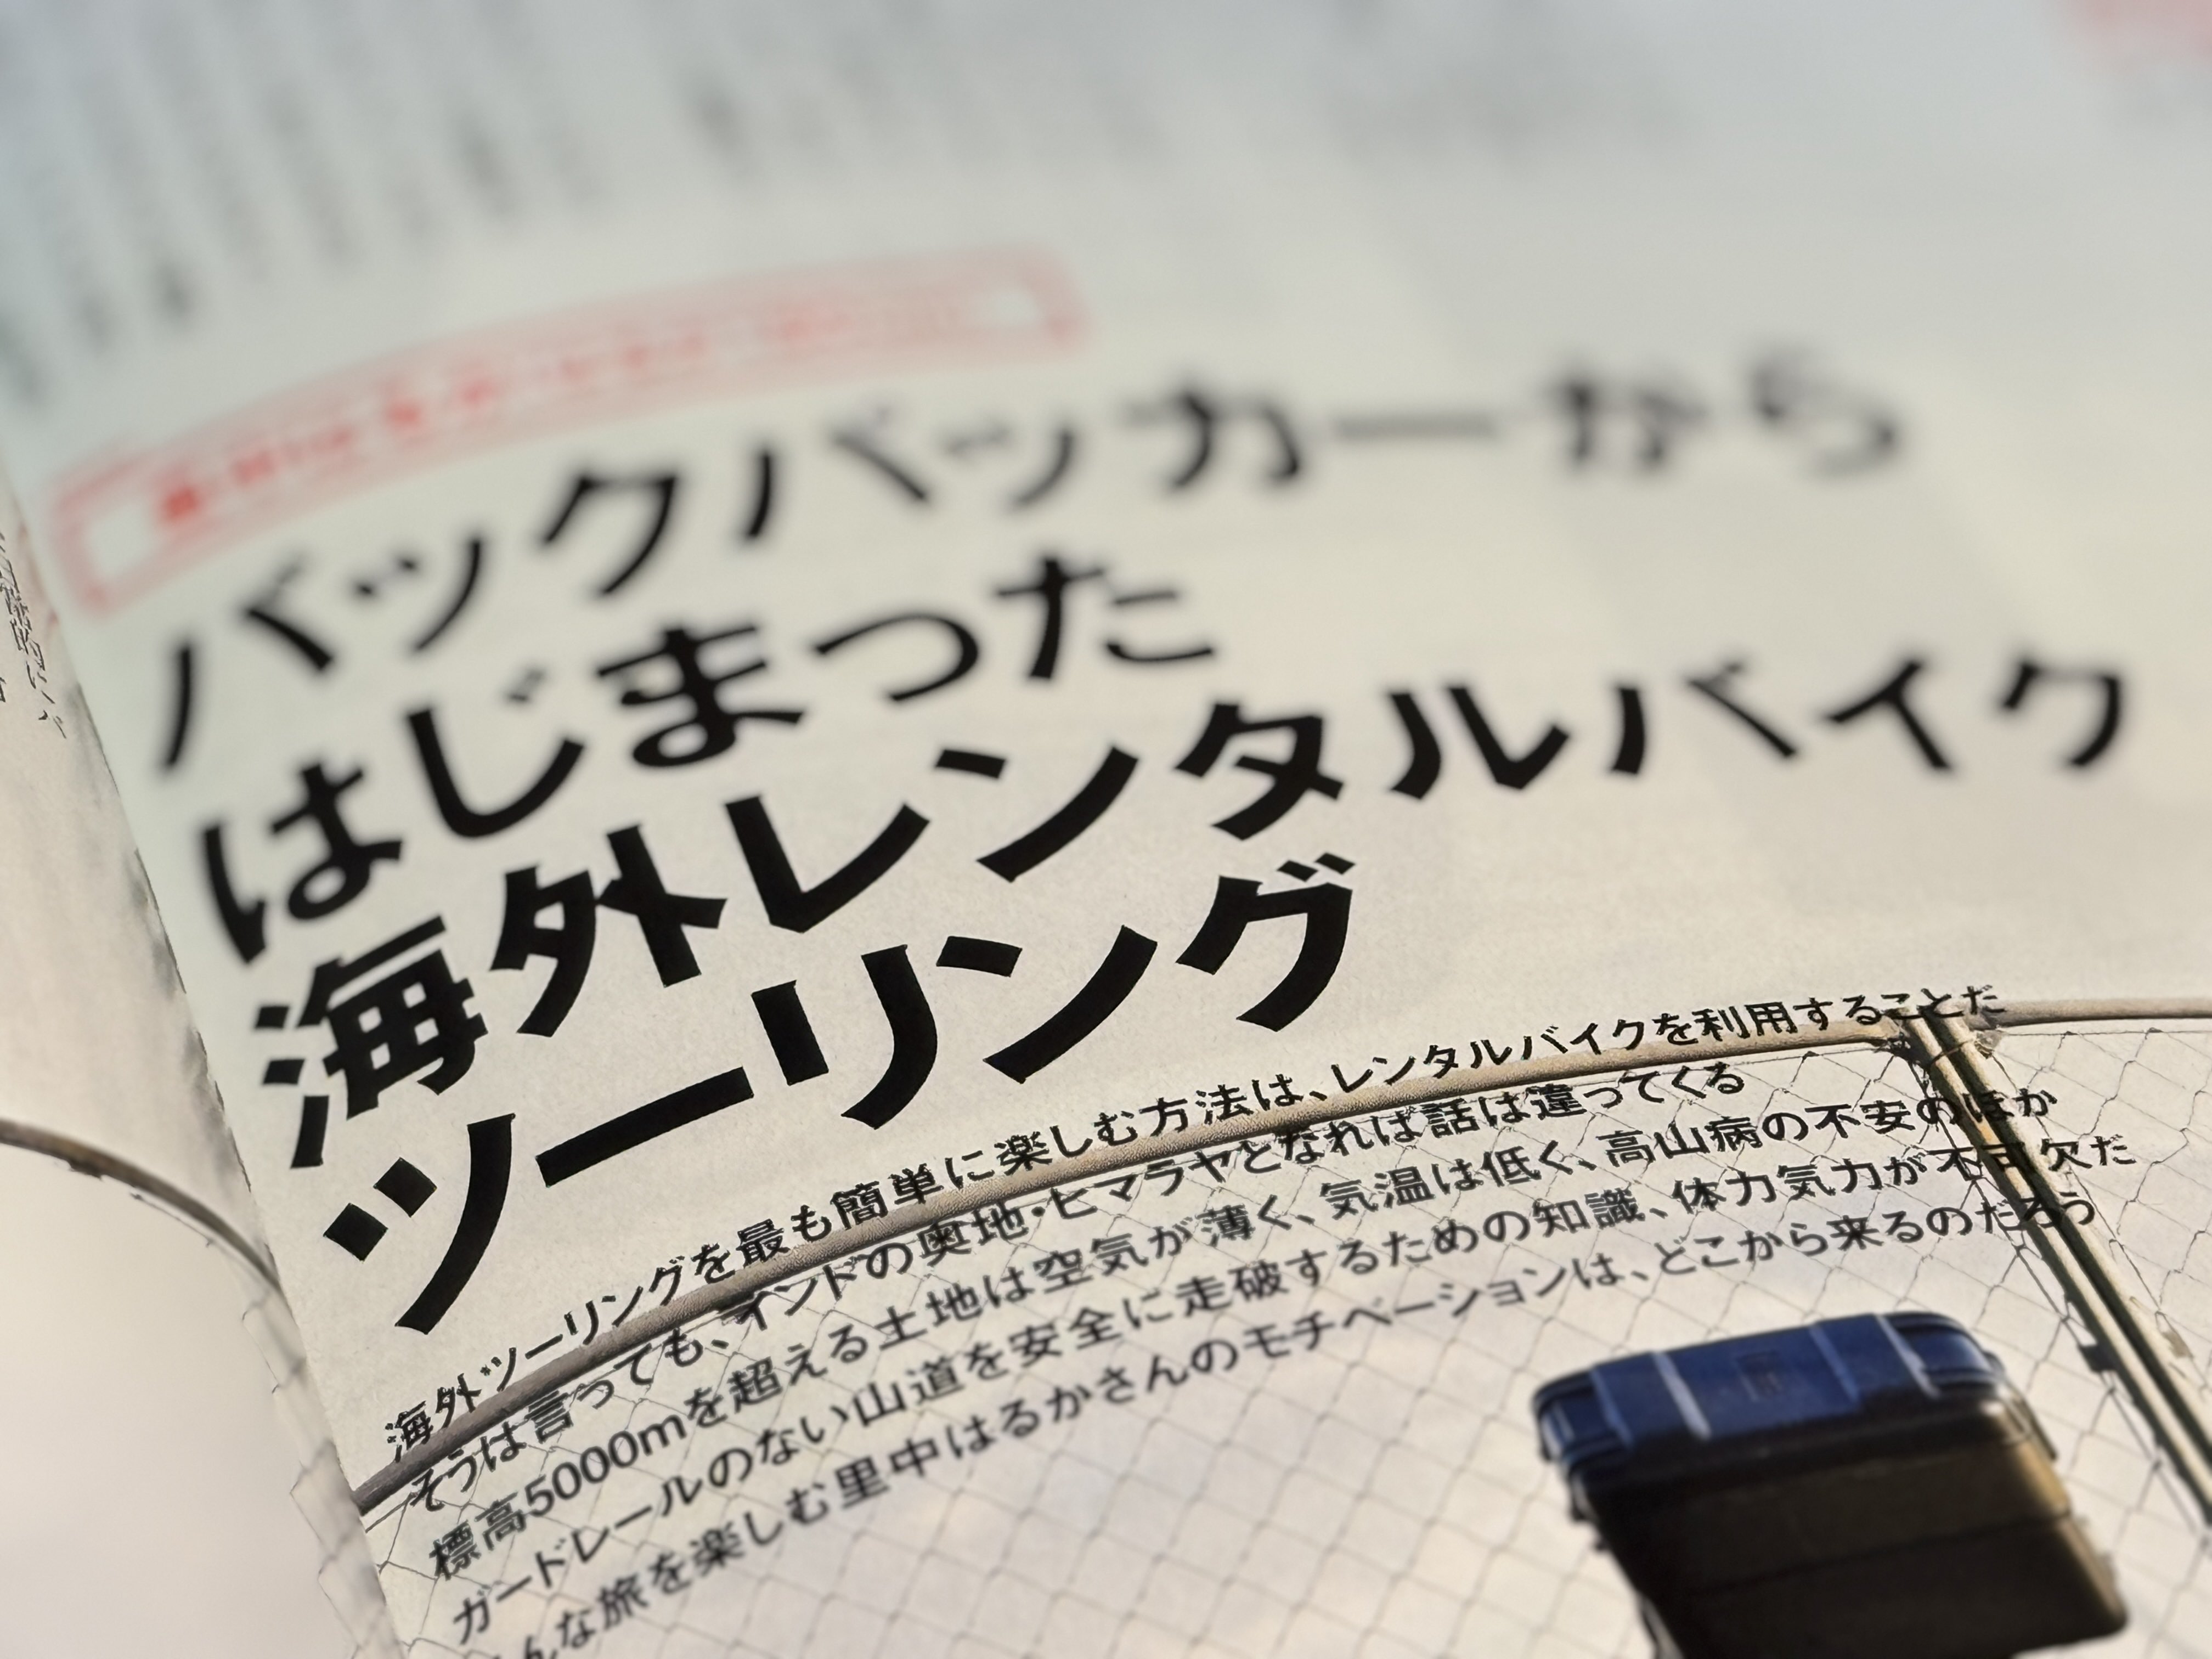 バックパッカーから
はじまった
海外レンタルバイク
ツーリング
海外ツーリングを最も簡単に楽しむ方法は、レンタルバイクを利用することだ
そうは言っても、インドの奥地・ヒマラヤとなれば話は違ってくる
標高5000mを超える土地は空気が薄く、気温は低く、高山病の不安のほか
ガードレールのない山道を安全に走破するための知識、体力気力が不可欠だ
んな旅を楽しむ里中はるかさんのモチベーションは、どこから来るのだろう